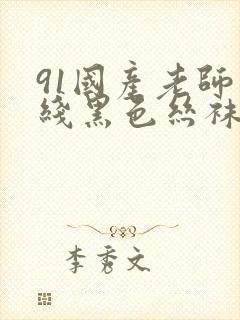 91國產老師
綫黑色絲袜
李秀文